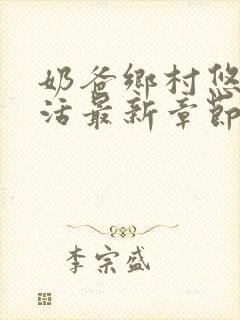 奶爸鄉村悠
活最新章節
李宗盛